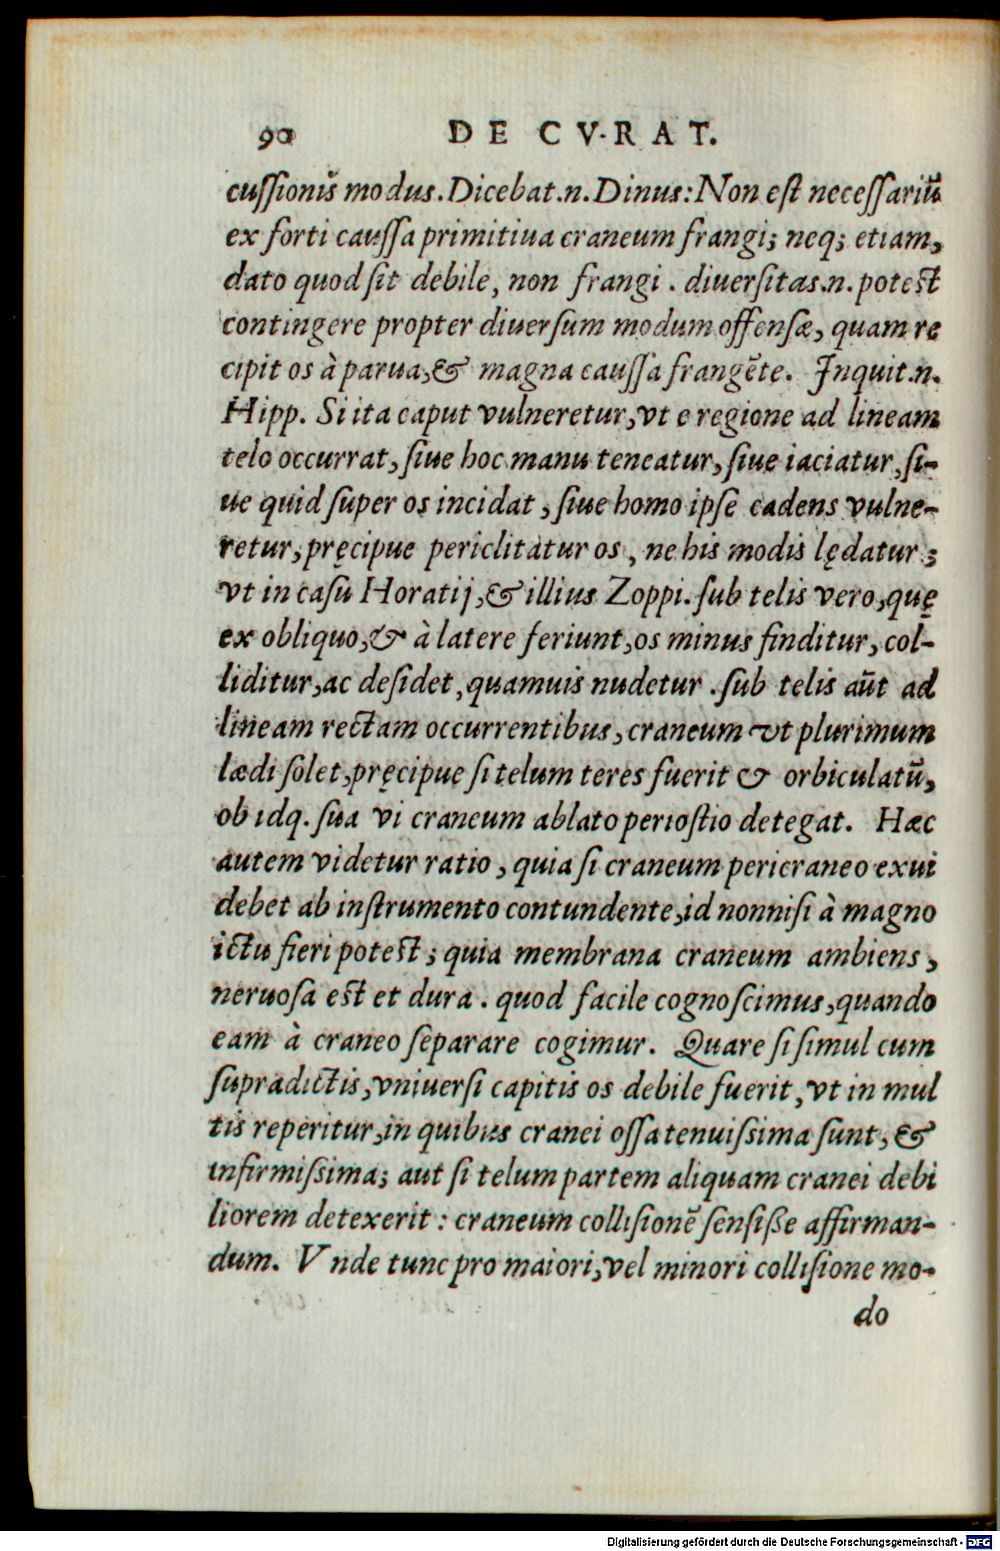 90 DE CV·RAT.
cussionis̃ modus. Dicebat .n. Dinus: Non est necessariũ
ex forti caussa primitiua craneum frangi; neq; etiam,
dato quod sit debile, non frangi . diuersitas .n. potest
contingere propter diuersum modum offensæ, quam re
cipit os à parua, & magna caussa frangẽte. Inquit .n.
Hipp. Si ita caput vulneretur, vt e regione ad lineam
telo occurrat, siue hoc manu teneatur, siue iaciatur, si-
ue quid super os incidat, siue homo ipse cadens vulne-
retur, pręcipue periclitatur os, ne his modis lędatur;
vt in casu Horatij, & illius Zoppi. sub telis vero, quę
ex obliquo, & à latere feriunt, os minus finditur, col-
liditur, ac desidet, quamuis nudetur . sub telis aũt ad
lineam rectam occurrentibus, craneum vt plurimum
lædi solet, pręcipue si telum teres fuerit & orbiculatũ,
ob idq. sua vi craneum ablato periostio detegat. Hæc
autem videtur ratio, quia si craneum pericraneo exui
debet ab instrumento contundente, id nonnisi à magno
ictu fieri potest; quia membrana craneum ambiens,
neruosa est et dura . quod facile cognoscimus, quando
eam à craneo separare cogimur. Quare si simul cum
supradictis, vniuersi capitis os debile fuerit, vt in mul
tis reperitur, in quibus cranei ossa tenuissima sunt, &
infirmissima; aut si telum partem aliquam cranei debi
liorem detexerit: craneum collisionẽ sensiße affirman-
dum. Vnde tunc pro maiori, vel minori collisione mo-
do
Digitalisierung gefördert durch die Deutsche Forschungsgemeinschaft - DFG